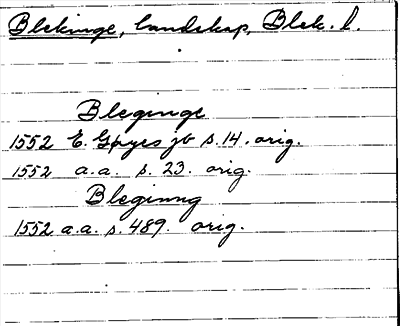 Blekinge, landskap, Blek. l.
Bleginge
1552 E. Gøyes jb s. 14. orig.
1552 a.a. s. 23. orig.
Bleginng
1552 a.a. s. 489. orig.